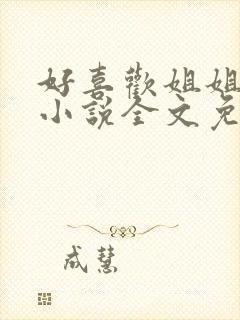 好喜歡姐姐
小說全文免
成慧